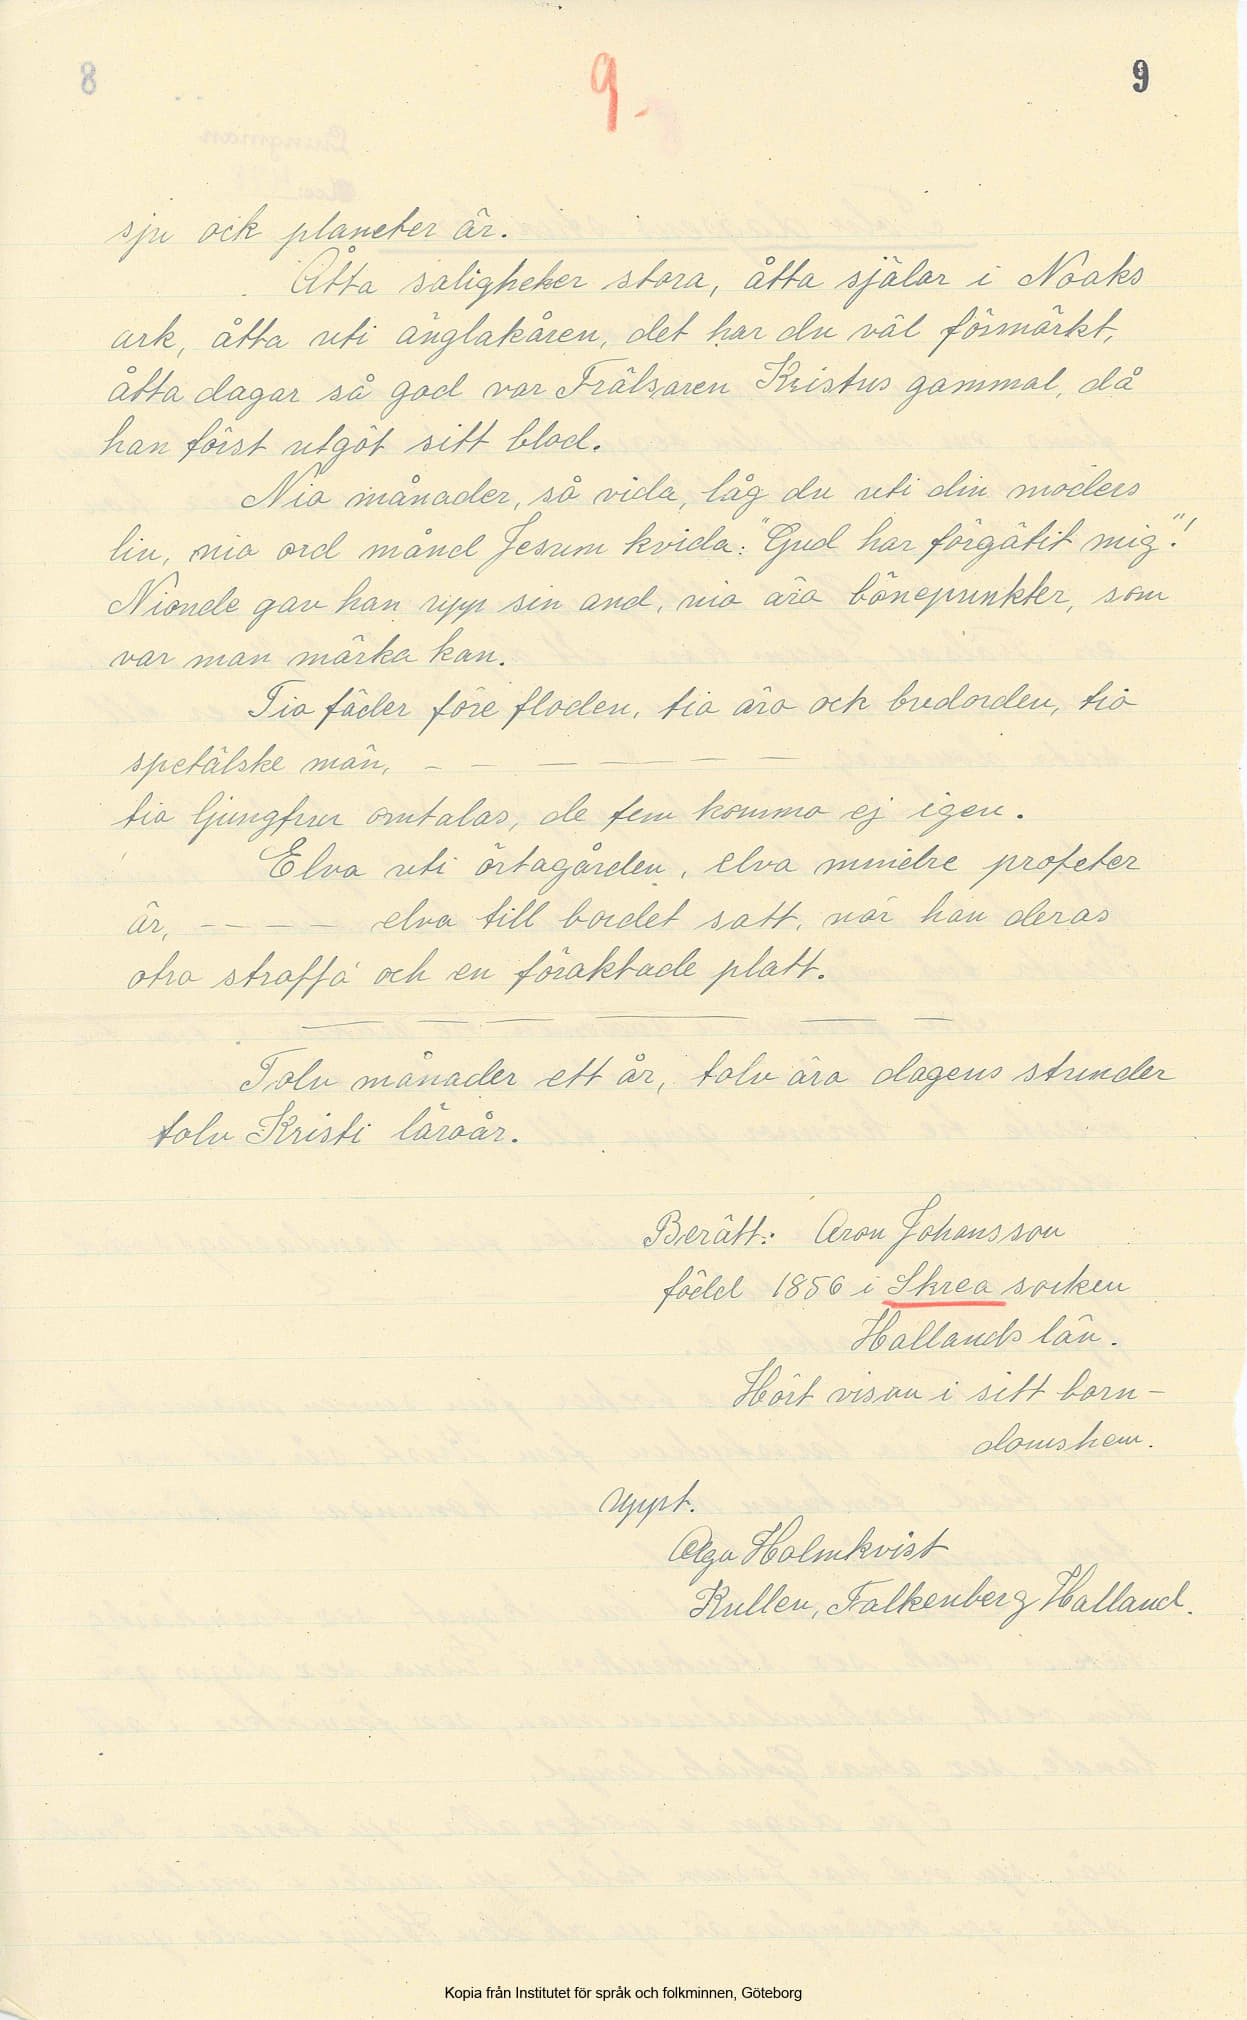 8 9. 9
sju ock planeter är.
Åtta saligheter stora, åtta själar i Noaks
ark, åtta uti änglakåren, det har du väl förmärkt,
åtta dagar så god var Frälsaren Kristus gammal, då
han först utgöt sitt blod.
Nio månader, så vida, låg du uti din moders
liv, nio ord månd Jesum kvida: "Gud har förgätit mig"!
Nionde gav han upp sin and, nio äro bönepunkter, som
var man märka kan.
Tio fäder före floden, tio äro ock budorden, tio
spetälske män, - - - - - - -
tio ljungfrur omtalas, de fem kommo ej igen.
Elva uti örtagården, elva mindre profeter
är, - - - - elva till bordet satt, när han deras
otro straffa och en föraktade platt.
Tolv månader ett år, tolv äro dagens stunder
tolv Kristi läroår.
Berätt: Aron Johansson
född 1856 i Skrea socken
Hallands län.
Hört visan i sitt barn-
domshem.
Uppt.
Olga Holmkvist
Kullen, Falkenberg Halland.
Kopia från Institutet för språk och folkminnen, Göteborg